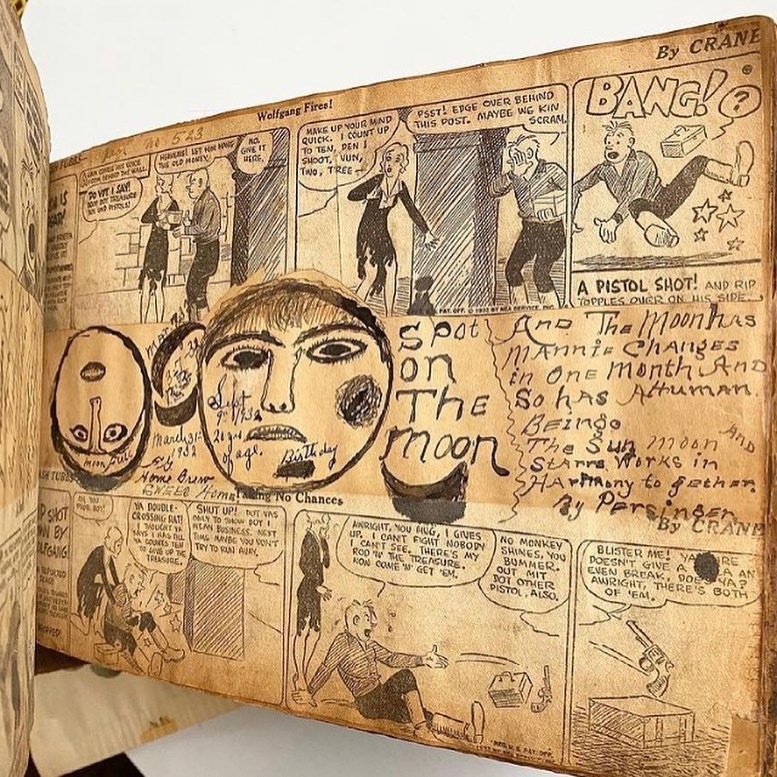 By CRANE
Wolfgang Fires!
No 543
HEAVENS! LET HIM HAVE
THE OLD MONEY.
NO.
GIVE IT
HERE.
DO VOT I SAY!
MAKE UP YOUR MIND
QUICK. I COUNT UP
TO TEN, DEN I
SHOOT, VUN,
TWO, TREE
PSST! EDGE OVER BEHIND
THIS POST. MAYBE WE KIN
SCRAM.
BANG!
?
A PISTOL SHOT! AND RIP
TOPPLES OVER ON HIS SIDE
Spot
on
The
moon
And The Moon has
Mannie Changes
in One Month And
So has A Human
Beings
The Sun moon And
Starrs Works in
Harmony to gether
By Persinger
Sept
9 1932
of age.
Birthday
March 31
1932
Home Brew
moon full
Taking No Chances
By CRANE
YA DOUBLE-
CROSSING RAT!
I THOUGHT YA
SAYS I HAS TILL
YA COUNTS TEN
TO GIVE UP THE
TREASURE.
SHUT UP! DOT VAS
ONLY TO SHOW DOT I
MEAN BUSINESS. NEXT
TIME MAYBE YOU VON'T
TRY TO RUN AVAY.
AWRIGHT, YOU MUG, I GIVES
UP. I CAN'T FIGHT NOBODY
I CAN'T SEE. THERE'S MY
ROD 'N' THE TREASURE.
NOW COME 'N' GET 'EM.
NO MONKEY
SHINES, YOU
BUMMER.
OUT MIT
DOT OTHER
PISTOL, ALSO.
BLISTER ME! YA
DOESN'T GIVE A AN
EVEN BREAK, DOES YA?
AWRIGHT, THERE'S BOTH
OF 'EM.